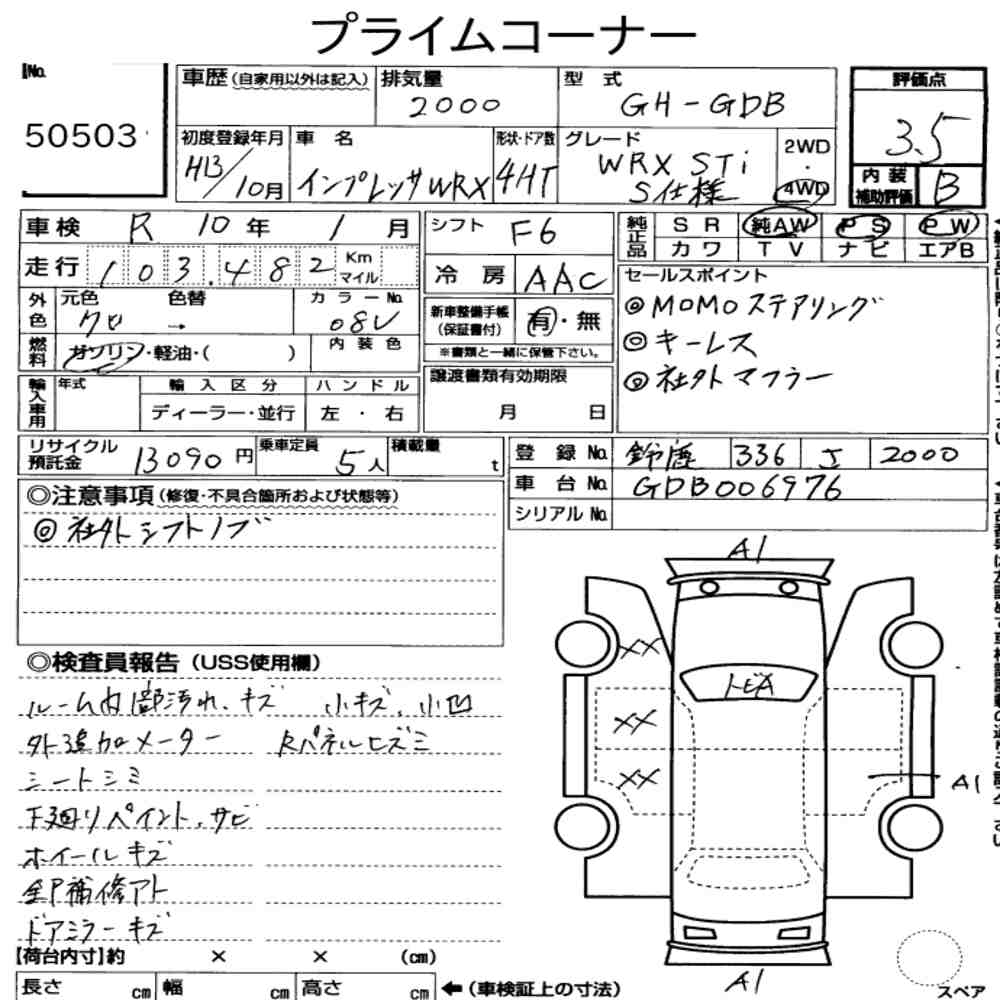 プライムコーナー
No.
50503
車歴(自家用以外は記入)
排気量
2000
型 式
GH-GDB
評価点
3.5
内装
補助評価
B
初度登録年月
H13/10月
車 名
インプレッサWRX
形状・ドア数
4HT
グレード
WRX STi
S仕様
2WD
・
4WD
車検 R 10年 1月
走行 103,482 Km
マイル
外色
元色 色替
クロ →
カラーNo.
08V
燃料
ガソリン・軽油・( )
内装色
輸入車用
年式
輸入区分
ディーラー・並行
ハンドル
左・右
シフト F6
冷房 AAC
新車整備手帳
(保証書付)
有・無
※書類と一緒に保管下さい。
譲渡書類有効期限
月 日
純正品
SR 純AW PS PW
カワ TV ナビ エアB
セールスポイント
◎MOMOステアリング
◎キーレス
◎社外マフラー
リサイクル
預託金
13090円
乗車定員
5人
積載量
t
登録No. 鈴鹿 336 さ 2000
車台No. GDB006976
シリアルNo.
◎注意事項(修復・不具合箇所および状態等)
◎社外シフトノブ
◎検査員報告(USS使用欄)
ルーム内部汚れ、キズ 小キズ、小凹
外追加メーター Rパネルヒズミ
シートシミ
下廻りペイント、サビ
ホイールキズ
全P補修アト
ドアミラーキズ
A1
XX
トビA
XX
XX
A1
A1
スペア
【荷台内寸】約 × × (cm)
長さ cm 幅 cm 高さ cm ←(車検証上の寸法)